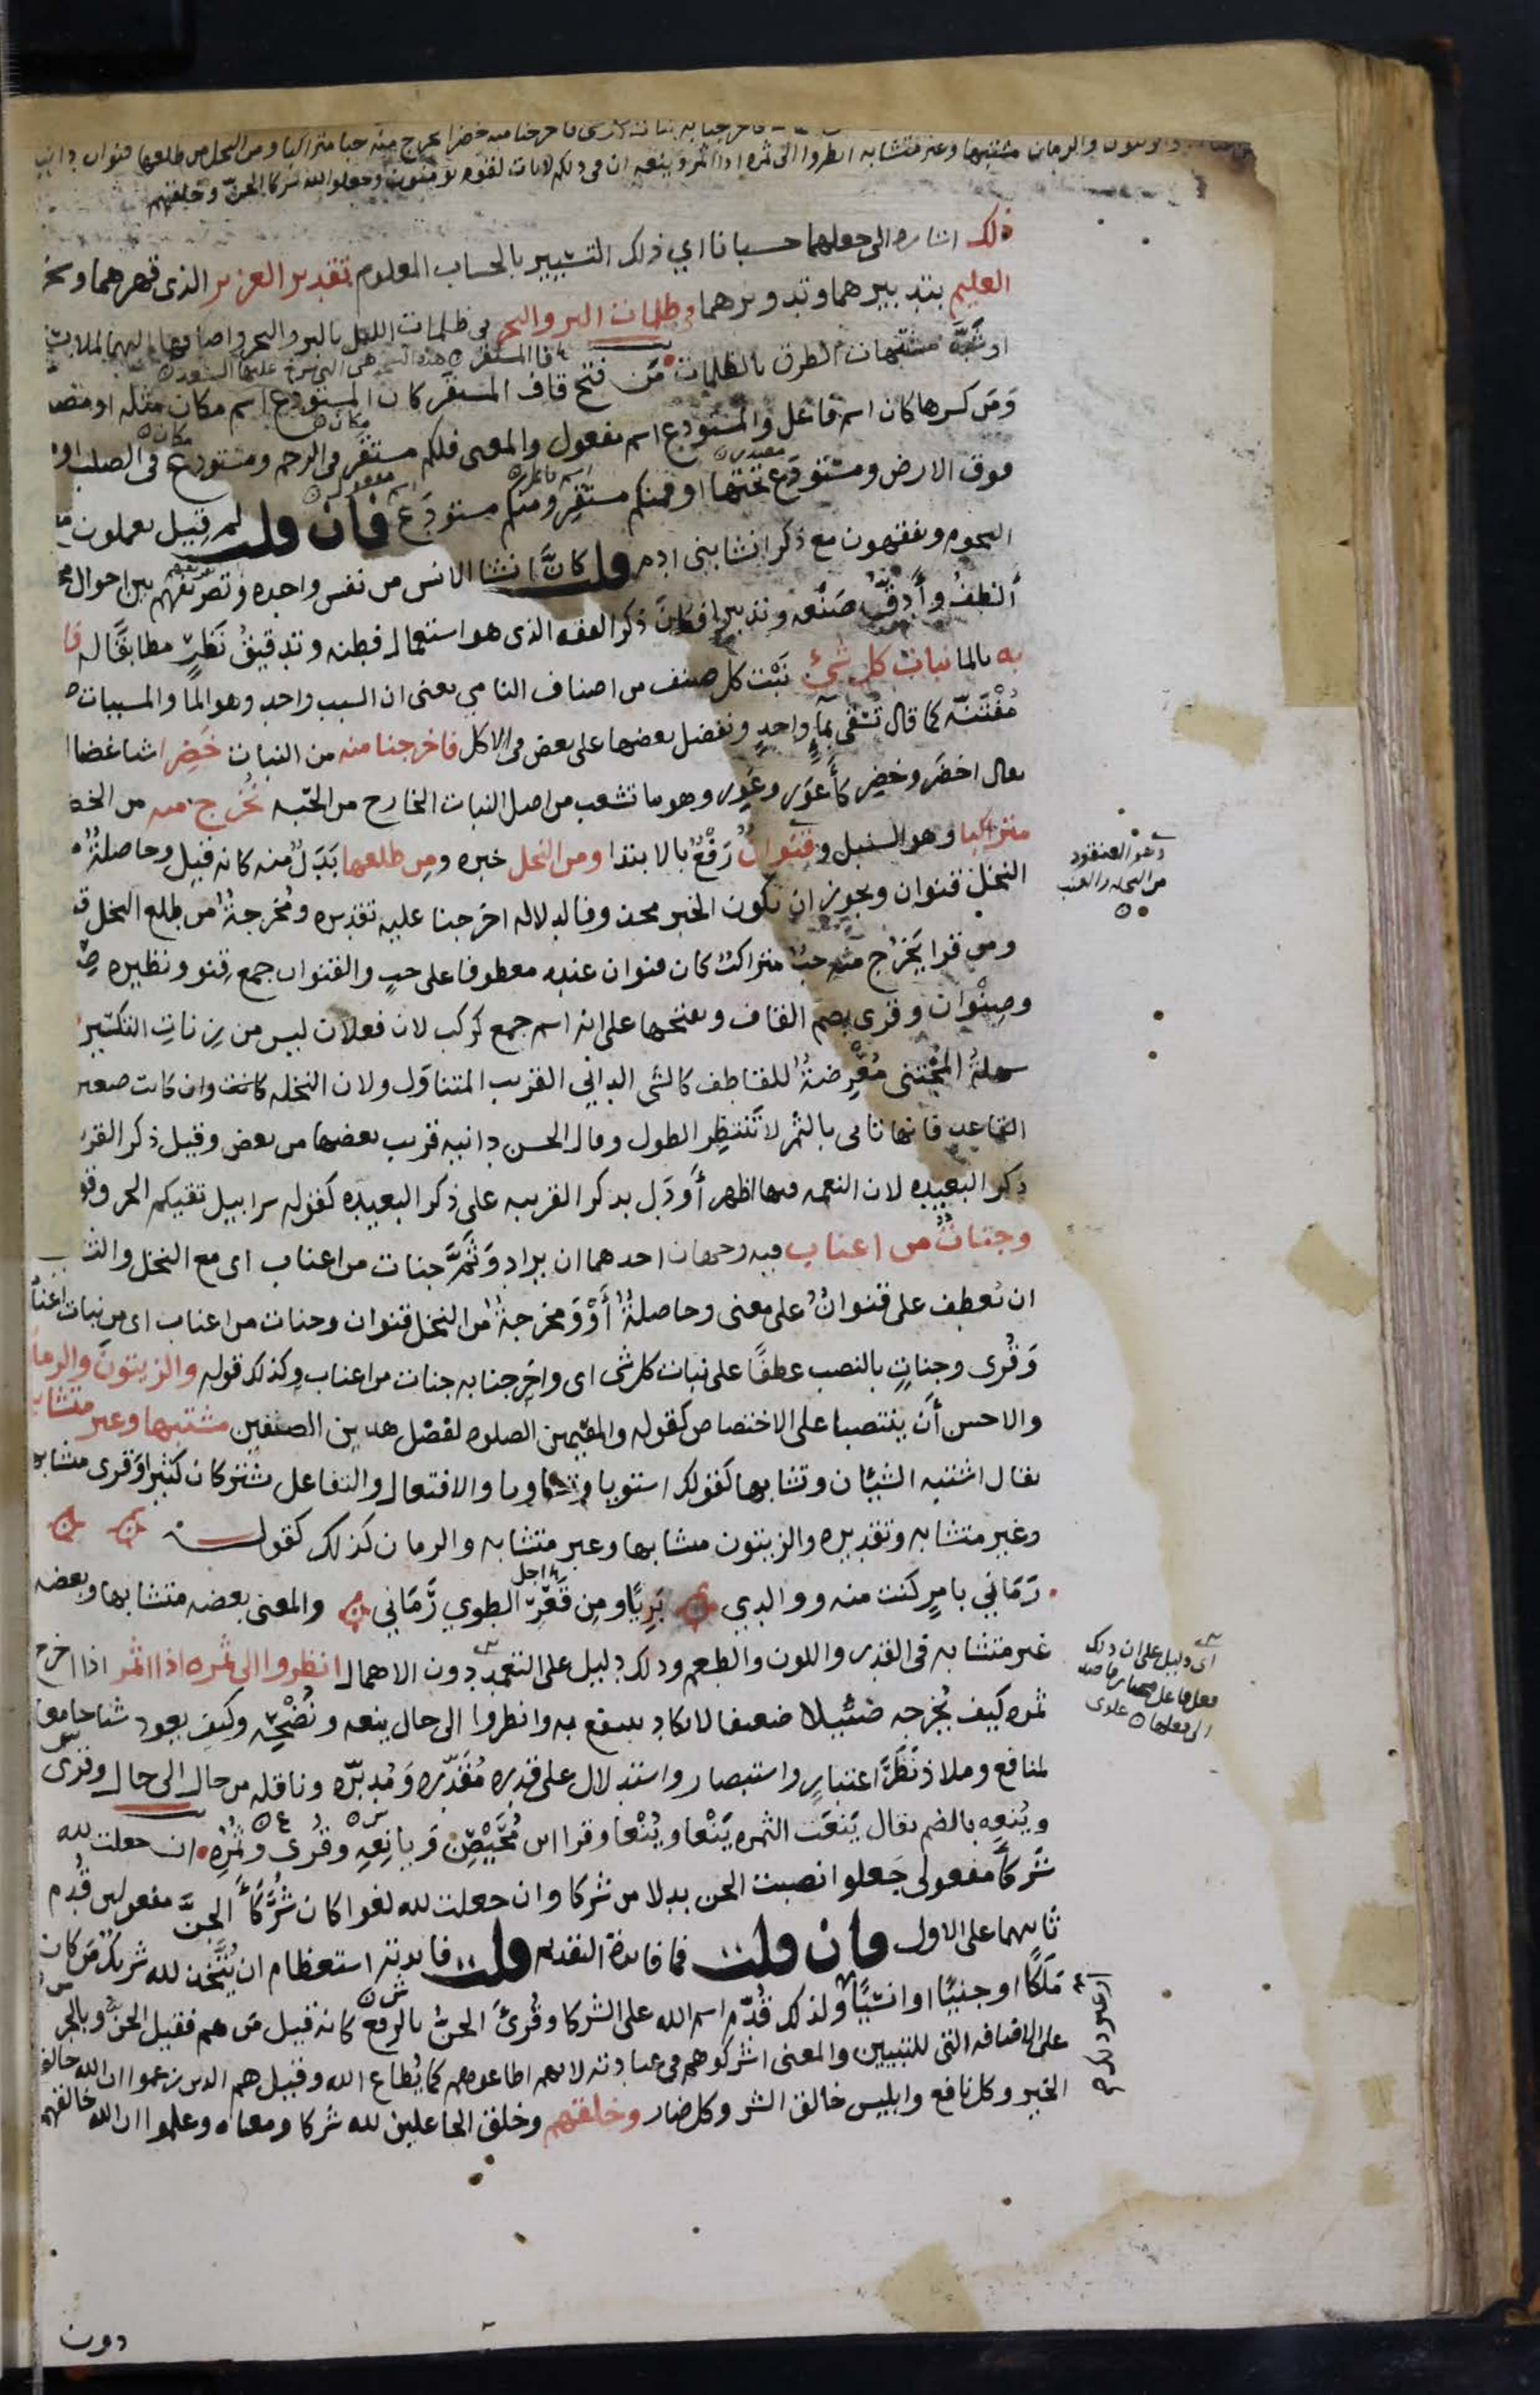 فاخرجنا منه خضرا نخرج منه حبا متراكبا ومن النخل من طلعها قنوان دانية
والزيتون والرمان مشتبها وغير متشابه انظروا الى ثمره اذا اثمر وينعه ان في ذلكم لايات لقوم يومنون وجعلوا لله شركا الجن وخلقهم
ذلك اشاره الى جعلهما حسبانا اي ذلك التسيير بالحساب المعلوم تقدير العزيز الذى قهرهما وسخر
العليم بتدبيرهما وتدويرهما في ظلمات البر والبحر في ظلمات الليل بالبر والبحر واضافها اليهما لملابستها
او شبَّه مشتبهات الطرق بالظلمات مَن فتح قاف المستقر كان المستودع اسم مكان مثله او مصد
وَمَن كسرها كان اسم فاعل والمستودع اسم مفعول والمعنى فلكم مستقر في الرحم ومستودع في الصلب او
فوق الارض ومستودع تحتها او فمنكم مستقِر ومنكم مستودَع فان قلت لم قيل يعلمون مع
النجوم ويفقهون مع ذكر انشا بنى ادم قلت كانَّ انشا الانس من نفس واحده وتصريفهم بين احوال
ألطفُ وأدقّ صَنْعَه وتدبيرا فكان ذكر الفقه الذى هو استعمال فطنه وتدقيقُ نَظَرٍ مطابقًا له فا
به بالما نبات كل شئ نَبْت كل صنف من اصناف النامي يعنى ان السبب واحد وهو الما والمسببات ص
مُفْتَنَّه كما قال تُسْقى بمآءٍ واحدٍ ونفضل بعضها على بعض في الاكل فاخرجنا منه من النبات خَضِرا شيا غضا ا
يقال اخضَر وخضِر كأعوَر وعَوِر وهو ما تشعب من اصل النبات الخارج من الحبّه نُخرج منه من الخضر
متراكبا وهو السنبل وقنوانٌ رَفْعٌ بالابتدا ومن النخل خبره ومِن طلعها بَدَلٌ منه كانه قيل وحاصلةٌ م
النخل قنوان ويجوز ان يكون الخبر محذوفا لدلاله اخرجنا عليه تقديره ومُخرجةٌ من طلع النخل ق
ومن قرا يَخْرُج منه حبٌ متراكبٌ كان قنوان عنده معطوفا على حبٍ والقنوان جمع قِنو ونظيره صِ
وصِنْوان وقرى بضم القاف وبفتحها على انه اسم جمع كركب لان فعلان ليس من زناتِ التكسير
سهلةُ المُجْتنى مُعْرِضةٌ للقاطف كالشى الدانى القريب المتناوَل ولان النخله كانت وان كانت صغير
القاعد فانها تاتى بالثمر لا تَنتظِر الطول وقال الحسن دانيه قريب بعضها من بعض وقيل ذكر القر
ذكر البعيده لان النعمه فيها اظهر أو دَل بذكر القريبه على ذكر البعيده كقوله سرابيل تقيكم الحر وقو
وجناتٌ من اعناب فيه وجهان احدهما ان يراد وَثَمَّ جنات من اعناب اى مع النخل والثـ
ان يُعطف على قنوانٌ على معنى وحاصلةٌ أَوْ وَمخرجةٌ من النخل قنوان وجنات من اعناب اى من نبات اعناب
وَقُرى وجناتٍ بالنصب عطفًا على نبات كل شى اى واخرجنا به جنات من اعناب وكذلك قوله والزيتونَ والرمان
والاحسن أن ينتصبا على الاختصاص كقوله والمقيمين الصلوه لفضل هذين الصنفين مشتبها وغير متشابه
يقال اشتبه الشيئان وتشابها كقولك استويا وتساويا والافتعال والتفاعل يشتركان كثيرا وقرى متشابها
وغير متشابه وتقديره والزيتون متشابها وغير متشابه والرمان كذلك كقوله
رَمَانِي بامرٍ كنت منه ووالدِي بَرِيًا ومِن قَعْرِ الطوِي رَمَاني والمعنى بعضه متشابها وبعضه
غير متشابه في القدر واللون والطعم وذلك دليل على التعمد دون الاهمال انظروا الى ثمره اذا اثمر اذا اخرج
ثمره كيف يُخرجه ضئيلا ضعيفا لا يكاد ينتفع به وانظروا الى حال ينعه ونُضْجِه وكيف يعود شيا جامعا
لمنافع وملاذ نَظَرَ اعتبارٍ واستبصار واستدلال على قدره مُقدّره وَمُدبّره وناقله من حال الى حال وقرى
ويُنعِه بالضم يقال يَنَعَت الثمره يَنْعا ويُنْعا وقرا ابن مُحَيْصِن وَيانِعِهِ وقُرى وثُمُرِه ان جعلت لله
شركآ مفعولى جَعلوا نصبت الجن بدلا من شركا وان جعلت لله لغوا كان شُرَكَآ الجنَّ مفعولين قُدم
ثانيهما على الاول فان قلت فما فايدة التقديم قلت فايدته استعظام ان يُتَّخذ لله شريكٌ مَن كان
مَلَكًا او جنيًا او انسيًا ولذلك قُدّم اسم الله على الشركا وقُرئ الجنُّ بالرفع كانه قيل مَن هم فقيل الجنُّ وبالجر
على الاضافه التى للتبيين والمعنى اشركوهم في عبادته لانهم اطاعوهم كما يُطاع الله وقيل هم الذين زعموا ان الله خالق
الخير وكل نافع وابليس خالق الشر وكل ضار وخلقهم وخلق الجاعلين لله شركا ومعناه وعلموا ان الله خالقهم
وهو العنقود
من النخل والعنب
اى دليل على ان ذلك
فعل فاعل مختار قاصد
الى فعلها علوى
دون